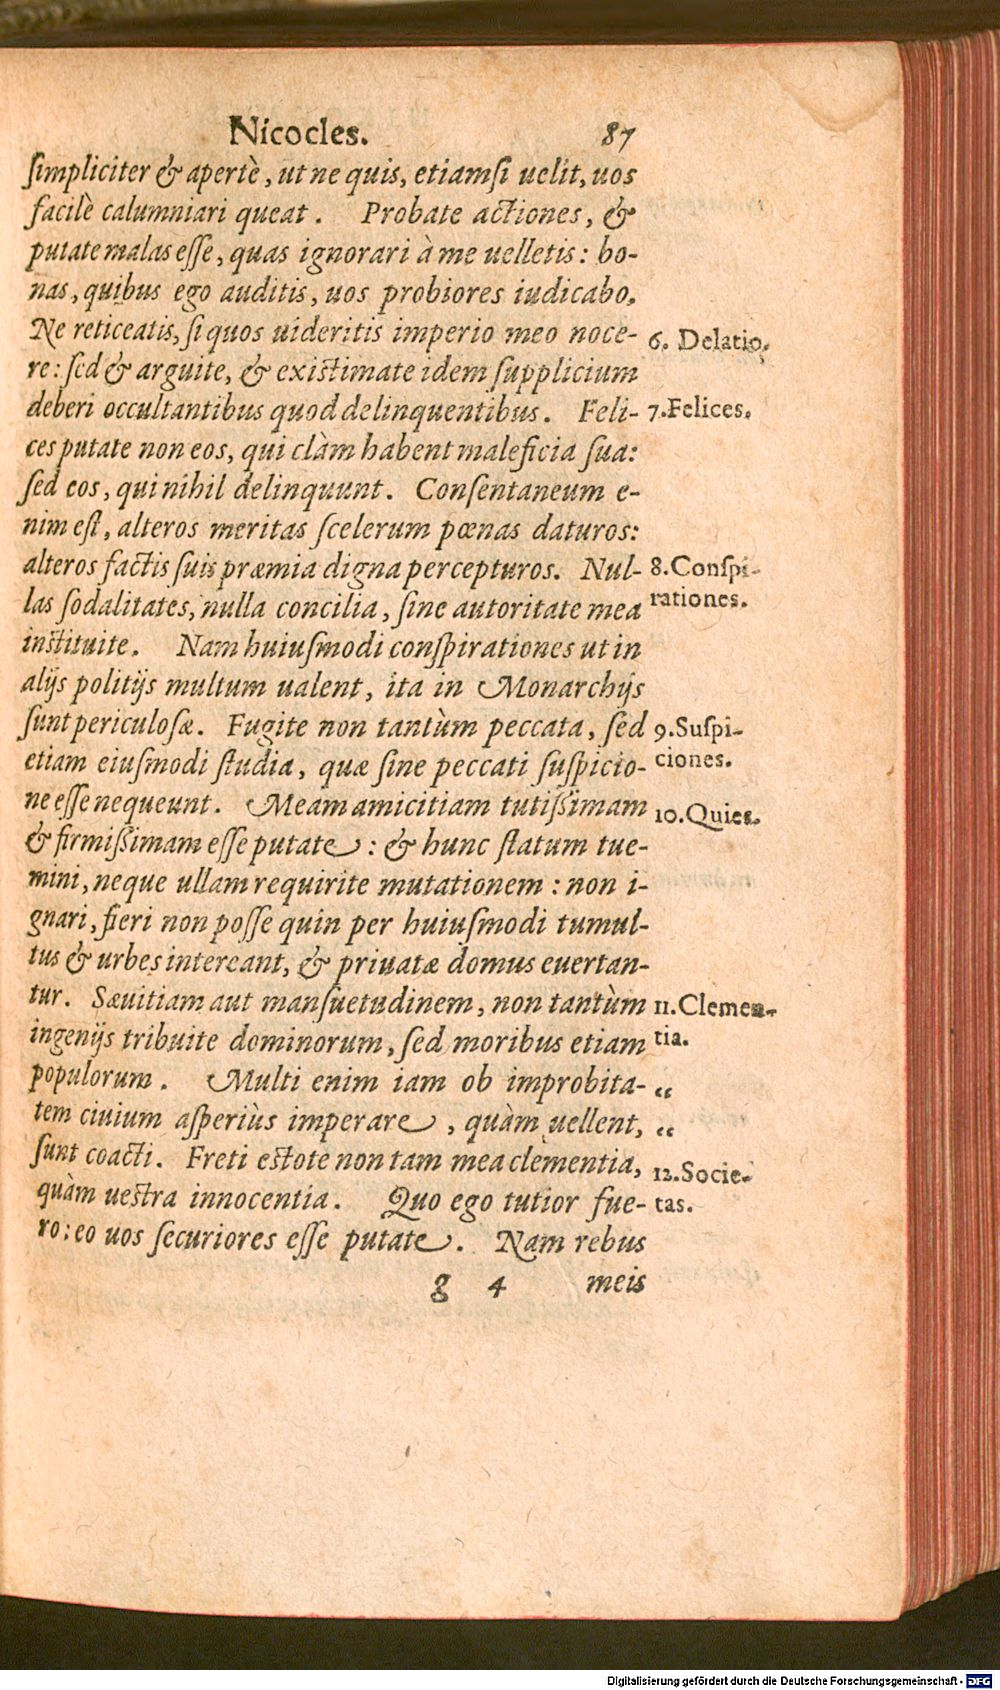 Nicocles. 87
simpliciter & apertè, ut ne quis, etiamsi uelit, uos
facilè calumniari queat. Probate actiones, &
putate malas esse, quas ignorari à me uelletis: bo-
nas, quibus ego auditis, uos probiores iudicabo.
Ne reticeatis, si quos uideritis imperio meo noce-
6. Delatio.
re: sed & arguite, & existimate idem supplicium
deberi occultantibus quod delinquentibus. Feli-
7. Felices.
ces putate non eos, qui clàm habent maleficia sua:
sed eos, qui nihil delinquunt. Consentaneum e-
nim est, alteros meritas scelerum pœnas daturos:
alteros factis suis præmia digna percepturos. Nul-
8. Conspi-
las sodalitates, nulla concilia, sine autoritate mea
rationes.
instituite. Nam huiusmodi conspirationes ut in
alijs politijs multum ualent, ita in Monarchijs
sunt periculosæ. Fugite non tantùm peccata, sed
9. Suspi-
etiam eiusmodi studia, quæ sine peccati suspicio-
ciones.
ne esse nequeunt. Meam amicitiam tutissimam
10. Quies.
& firmissimam esse putate: & hunc statum tue-
mini, neque ullam requirite mutationem: non i-
gnari, fieri non posse quin per huiusmodi tumul-
tus & urbes intereant, & priuatæ domus euertan-
tur. Sæuitiam aut mansuetudinem, non tantùm
11. Clemen-
ingenijs tribuite dominorum, sed moribus etiam
tia.
populorum. Multi enim iam ob improbita-
“
tem ciuium asperiùs imperare, quàm uellent,
“
sunt coacti. Freti estote non tam mea clementia,
12. Socie-
quàm uestra innocentia. Quo ego tutior fue-
tas.
ro: eo uos securiores esse putate. Nam rebus
g 4 meis
Digitalisierung gefördert durch die Deutsche Forschungsgemeinschaft - DFG